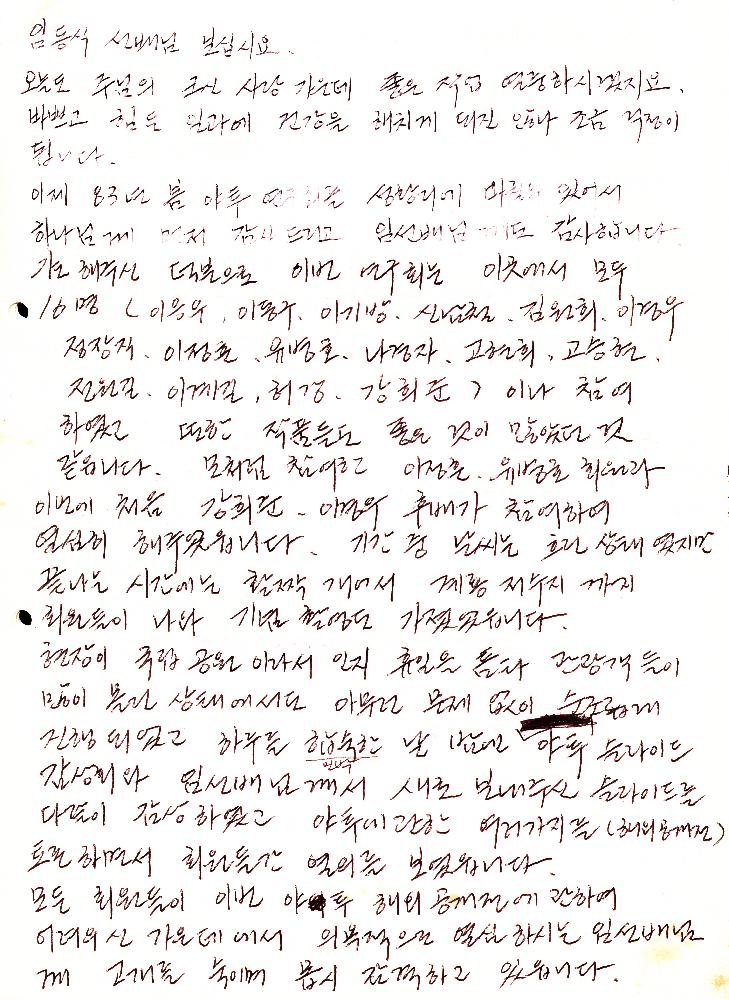 임동식 선배님 보십시요.
오늘도 주님의 크신 사랑 가운데 좋은 작업 열중하시겠지요.
바쁘고 힘든 일과에 건강을 해치게 되진 않나 조금 걱정이
됩니다.
이제 83년 봄 야투 연구회를 성황리에 마칠수 있어서
하나님께 먼저 감사드리고 임선배님께도 감사합니다.
기도해주신 덕분으로 이번 연구회는 이곳에서 모두
16명 (이응우, 이종구, 이기방, 신남철, 김원희, 이경우
정장직, 이정훈, 유병호, 나경자, 고현희, 고승현,
전원길, 이계길, 허강, 강희준) 이나 참여
하였고 또한 작품들도 좋은 것이 많았던 것
같읍니다. 모처럼 참여한 이정훈, 유병호 회원과
이번에 처음 강희준, 이경우 후배가 참여하여
열심히 해주었읍니다. 기간중 날씨는 흐린 상태였지만
끝나는 시간에는 활짝 개어서 계룡 저수지까지
회원들이 나와 기념 촬영도 가졌었읍니다.
현장이 국립 공원이라서 인지 휴일을 틈타 관광객들이
많이 몰린 상태에서도 아무런 문제 없이 순조롭게
진행되었고 하루를 합숙한 날 밤에는 야투 슬라이드
감상회와 임선배님께서 새로 보내주신 슬라이드를
다같이 감상하였고 야투에 관한 여러가지를 (해외공개전)
토론하면서 회원들간 열의를 보였읍니다.
모든 회원들이 이번 야투 해외 공개전에 관하여
어려우신 가운데에서 의욕적으로 열심하시는 임선배님
께 고개를 숙이며 몹시 감격하고 있읍니다.